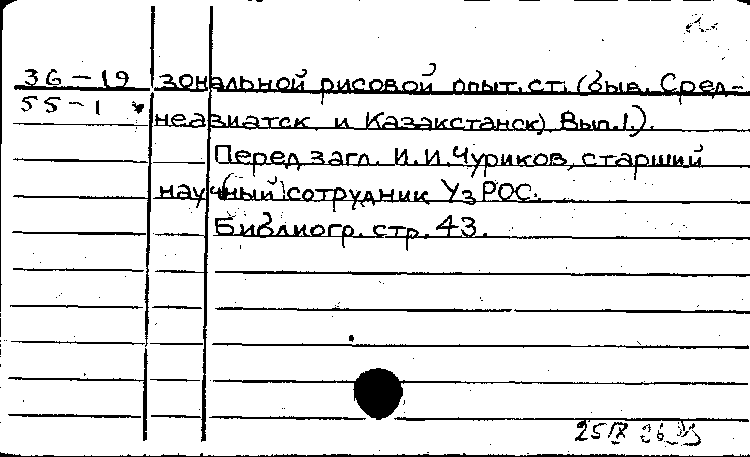 36-19 зональной рисовой опыт. ст. (быв. Сред-
55-1 неазиатск. и Казакстанск) Вып.1.).
Перед загл. И.И.Чуриков, старший
научный сотрудник УзРОС.
Библиогр. стр. 43.
25/IX 36